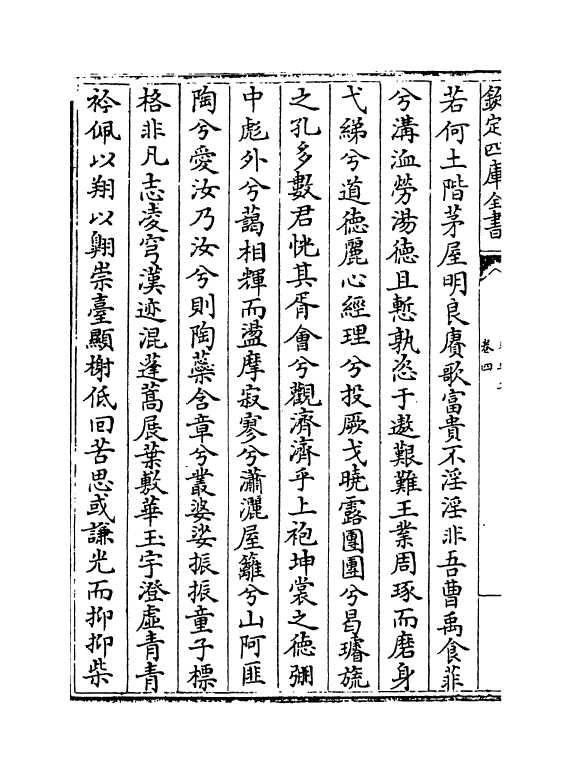 欽定四庫全書
卷四
若何土階茅屋明良賡歌富貴不淫淫非吾曹禹食菲
兮溝洫勞湯德且慙孰忽于遨艱難王業周琢而磨身
弋綈兮道德麗心經理兮投厥戈曉露團團兮曷璿旒
之孔多數君恍其胥會兮觀濟濟乎上袍坤裳之德弸
中彪外兮藹相輝而盪摩寂寥兮瀟灑屋籬兮山阿匪
陶兮愛汝乃汝兮則陶蘂含章兮叢婆娑振振童子標
格非凡志凌穹漢迹混蓬蒿展葉敷華玉宇澄虛青青
衿佩以翔以翺崇臺顯榭低回苦思或謙光而抑抑柴